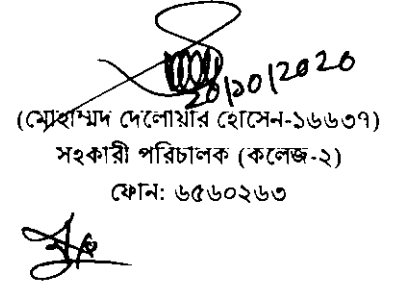 20/10/2020
(মোহাম্মদ দেলোয়ার হোসেন-১৬৬৩৭)
সহকারী পরিচালক (কলেজ-২)
ফোন: ৬৫৬০২৬৩